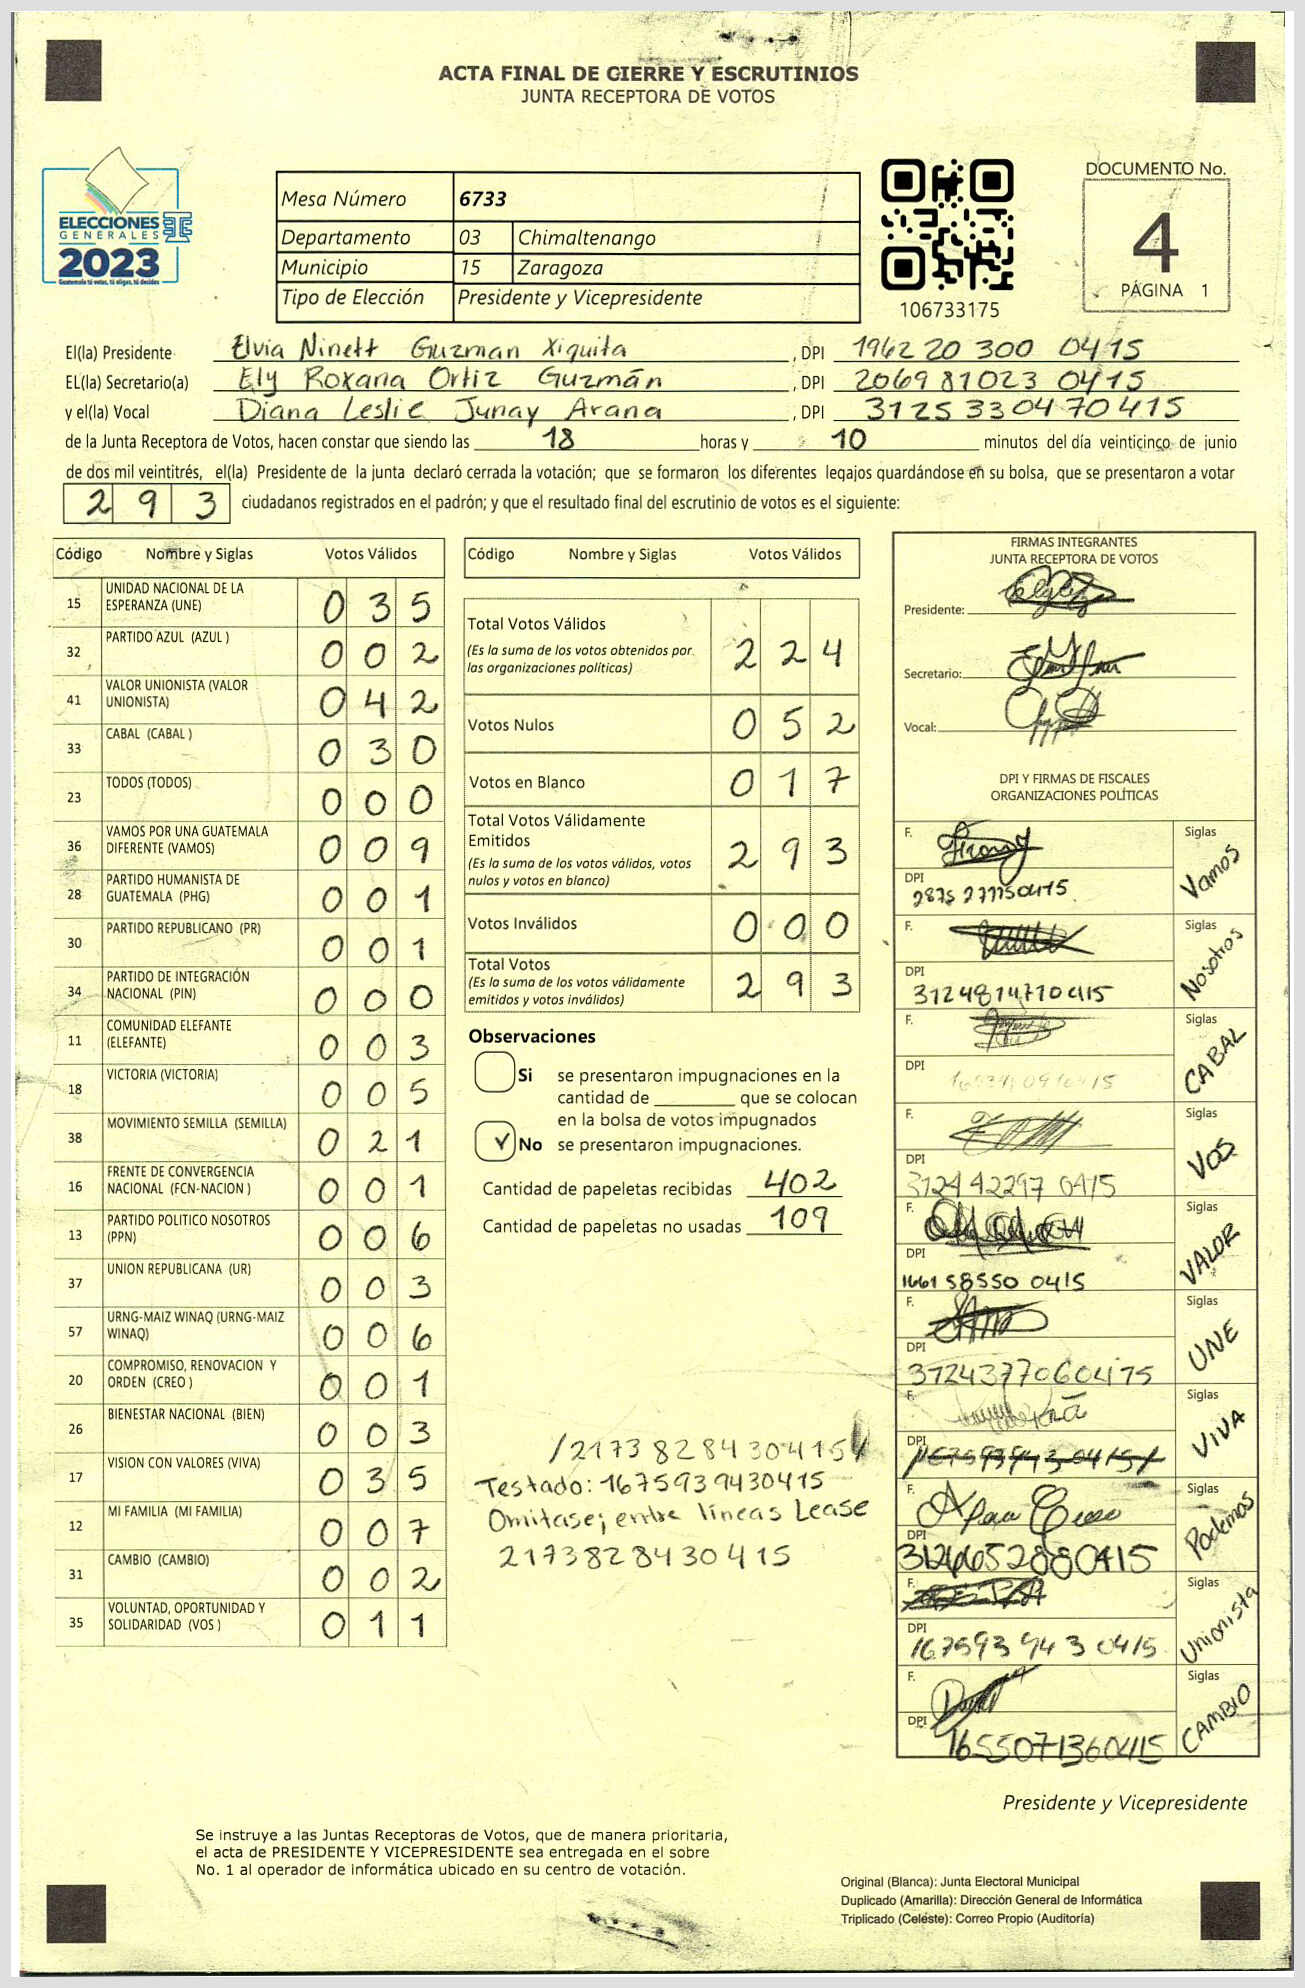 ACTA FINAL DE CIERRE Y ESCRUTINIOS
JUNTA RECEPTORA DE VOTOS
ELECCIONES
GENERALES
2023
Guatemala tú votas, tú eliges, tú decides
Mesa Número 6733
Departamento 03 Chimaltenango
Municipio 15 Zaragoza
Tipo de Elección Presidente y Vicepresidente
106733175
DOCUMENTO No.
4
PÁGINA 1
El(la) Presidente Elvia Ninett Guzman Xiquita, DPI 1962 20 300 0415
EL(la) Secretario(a) Ely Roxana Ortiz Guzmán, DPI 2069 81023 0415
y el(la) Vocal Diana Leslie Junay Arana, DPI 3125 33047 0415
de la Junta Receptora de Votos, hacen constar que siendo las 18 horas y 10 minutos del día veinticinco de junio
de dos mil veintitrés, el(la) Presidente de la junta declaró cerrada la votación; que se formaron los diferentes legajos guardándose en su bolsa, que se presentaron a votar
293 ciudadanos registrados en el padrón; y que el resultado final del escrutinio de votos es el siguiente:
Código Nombre y Siglas Votos Válidos
15 UNIDAD NACIONAL DE LA ESPERANZA (UNE) 035
32 PARTIDO AZUL (AZUL ) 002
41 VALOR UNIONISTA (VALOR UNIONISTA) 042
33 CABAL (CABAL ) 030
23 TODOS (TODOS) 000
36 VAMOS POR UNA GUATEMALA DIFERENTE (VAMOS) 009
28 PARTIDO HUMANISTA DE GUATEMALA (PHG) 001
30 PARTIDO REPUBLICANO (PR) 001
34 PARTIDO DE INTEGRACIÓN NACIONAL (PIN) 000
11 COMUNIDAD ELEFANTE (ELEFANTE) 003
18 VICTORIA (VICTORIA) 005
38 MOVIMIENTO SEMILLA (SEMILLA) 021
16 FRENTE DE CONVERGENCIA NACIONAL (FCN-NACION ) 001
13 PARTIDO POLITICO NOSOTROS (PPN) 006
37 UNION REPUBLICANA (UR) 003
57 URNG-MAIZ WINAQ (URNG-MAIZ WINAQ) 006
20 COMPROMISO, RENOVACION Y ORDEN (CREO ) 001
26 BIENESTAR NACIONAL (BIEN) 003
17 VISION CON VALORES (VIVA) 035
12 MI FAMILIA (MI FAMILIA) 007
31 CAMBIO (CAMBIO) 002
35 VOLUNTAD, OPORTUNIDAD Y SOLIDARIDAD (VOS ) 011
Código Nombre y Siglas Votos Válidos
Total Votos Válidos 224
(Es la suma de los votos obtenidos por
las organizaciones políticas)
Votos Nulos 052
Votos en Blanco 017
Total Votos Válidamente
Emitidos 293
(Es la suma de los votos válidos, votos
nulos y votos en blanco)
Votos Inválidos 000
Total Votos 293
(Es la suma de los votos válidamente
emitidos y votos inválidos)
Observaciones
Si se presentaron impugnaciones en la
cantidad de ________ que se colocan
en la bolsa de votos impugnados
✓ No se presentaron impugnaciones.
Cantidad de papeletas recibidas 402
Cantidad de papeletas no usadas 109
/2173828430415/
Testado: 1675939430415
Omitase; entre líneas Lease
2173828430415
FIRMAS INTEGRANTES
JUNTA RECEPTORA DE VOTOS
Presidente:
Secretario:
Vocal:
DPI Y FIRMAS DE FISCALES
ORGANIZACIONES POLÍTICAS
F. Siglas Vamos
DPI
F. Siglas Nosotros
DPI 3124814710415
F. Siglas CABAL
DPI
F. Siglas VOS
DPI 3124 42297 0415
F. Siglas VALOR
DPI 1661 58550 0415
F. Siglas UNE
DPI 3124377060415
F. Siglas VIVA
DPI /1675939430415/
F. Siglas Podemos
DPI 3126652880415
F. Siglas Unionista
DPI 167593943 0415
F. Siglas CAMBIO
DPI 1655071360415
Presidente y Vicepresidente
Se instruye a las Juntas Receptoras de Votos, que de manera prioritaria,
el acta de PRESIDENTE Y VICEPRESIDENTE sea entregada en el sobre
No. 1 al operador de informática ubicado en su centro de votación.
Original (Blanca): Junta Electoral Municipal
Duplicado (Amarilla): Dirección General de Informática
Triplicado (Celeste): Correo Propio (Auditoría)